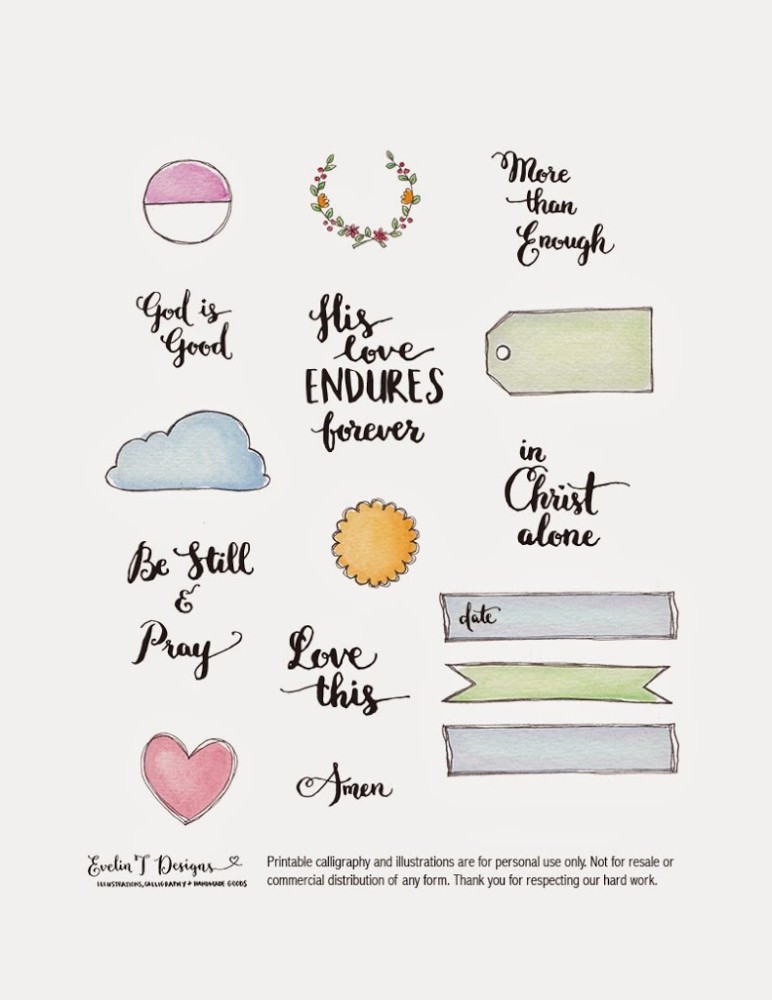 More
than
Enough
God is
Good
His
love
ENDURES
forever
in
Christ
alone
Be Still
&
Pray
date
Love
this
Amen
Evelin T Designs
ILLUSTRATIONS, CALLIGRAPHY + HANDMADE GOODS
Printable calligraphy and illustrations are for personal use only. Not for resale or
commercial distribution of any form. Thank you for respecting our hard work.